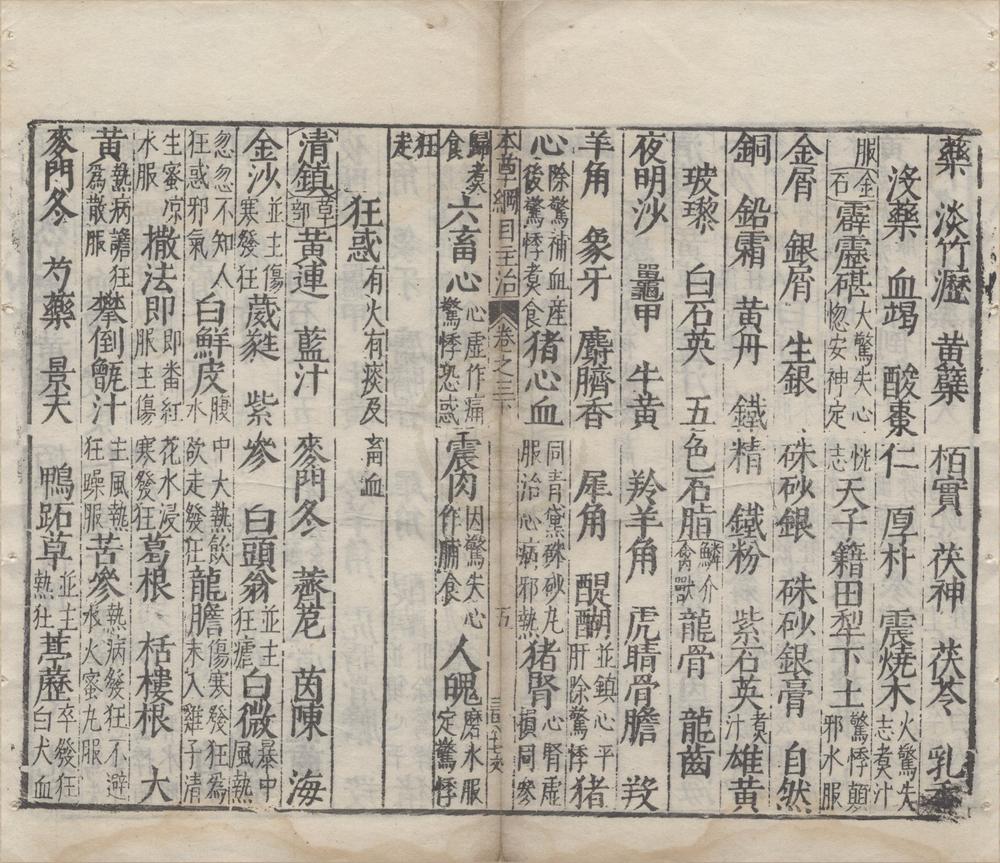 藥 淡竹瀝 黃蘗 栢實 茯神 茯苓 乳香
沒藥 血竭 酸棗仁 厚朴 震燒木火驚失志煮汁
服 金石 霹靂碪大驚失心恍惚安神定志 天子籍田犁下土驚悸顛邪水服
金屑 銀屑 生銀 硃砂銀 硃砂銀膏 自然
銅 鉛霜 黃丹 鐵精 鐵粉 紫石英煮汁 雄黃
玻瓈 白石英 五色石脂 鱗介禽獸 龍骨 龍齒
夜明沙 鼉甲 牛黃 羚羊角 虎睛骨膽 羖
羊角 象牙 麝臍香 犀角 醍醐並鎮心平肝除驚悸 猪
心除驚補血産後驚悸煮食 猪心血同青黛硃砂丸服治心病邪熱 猪腎心腎虛損同參
本草綱目主治 卷之三下 五
歸煮食 六畜心心虛作痛驚悸恐惑 震肉因驚失心作脯食 人魄磨水服定驚悸
狂走
狂惑有火有痰及畜血
清鎮 草部 黃連 藍汁 麥門冬 薺苨 茵陳 海
金沙並主傷寒發狂 葳蕤 紫參 白頭翁並主狂瘧 白微暴中風熱
忽忽不知人狂惑邪氣 白鮮皮腹中大熱飲水欲走發狂 龍膽傷寒發狂為末入雞子清
生蜜凉水服 撒法即即番紅花水浸服主傷寒發狂 葛根 栝樓根 大
黃熱病譫狂為散服 攀倒甑汁主風熱狂躁服 苦參熱病發狂不避水火蜜丸服
麥門冬 芍藥 景天 鴨跖草並主熱狂 葶藶卒發狂白犬血